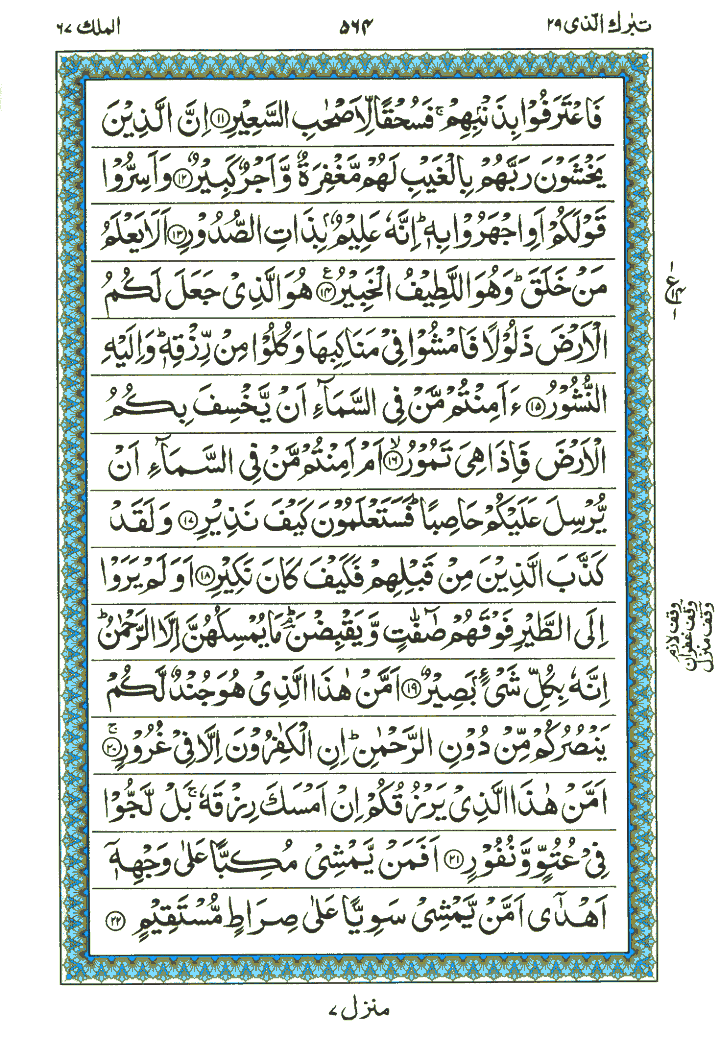 تبٰرك الّذى ٢٩
۵۶۴
الملك ٦٧
فَاعْتَرَفُوْا بِذَنْۢبِهِمْ ۚ فَسُحْقًا لِّاَصْحٰبِ السَّعِيْرِ ۝۱۱ اِنَّ الَّذِيْنَ
يَخْشَوْنَ رَبَّهُمْ بِالْغَيْبِ لَهُمْ مَّغْفِرَةٌ وَّاَجْرٌ كَبِيْرٌ ۝۱۲ وَاَسِرُّوْا
قَوْلَكُمْ اَوِ اجْهَرُوْا بِهٖ ؕ اِنَّهٗ عَلِيْمٌۢ بِذَاتِ الصُّدُوْرِ ۝۱۳ اَلَا يَعْلَمُ
مَنْ خَلَقَ ؕ وَهُوَ اللَّطِيْفُ الْخَبِيْرُ ۝۱۴ هُوَ الَّذِيْ جَعَلَ لَكُمُ
الْاَرْضَ ذَلُوْلًا فَامْشُوْا فِيْ مَنَاكِبِهَا وَكُلُوْا مِنْ رِّزْقِهٖ ؕ وَاِلَيْهِ
النُّشُوْرُ ۝۱۵ ءَاَمِنْتُمْ مَّنْ فِي السَّمَآءِ اَنْ يَّخْسِفَ بِكُمُ
الْاَرْضَ فَاِذَا هِيَ تَمُوْرُ ۙ۝۱۶ اَمْ اَمِنْتُمْ مَّنْ فِي السَّمَآءِ اَنْ
يُّرْسِلَ عَلَيْكُمْ حَاصِبًا ؕ فَسَتَعْلَمُوْنَ كَيْفَ نَذِيْرِ ۝۱۷ وَلَقَدْ
كَذَّبَ الَّذِيْنَ مِنْ قَبْلِهِمْ فَكَيْفَ كَانَ نَكِيْرِ ۝۱۸ اَوَلَمْ يَرَوْا
اِلَى الطَّيْرِ فَوْقَهُمْ صٰٓفّٰتٍ وَّيَقْبِضْنَ ؔۘؕ مَا يُمْسِكُهُنَّ اِلَّا الرَّحْمٰنُ ؕ
اِنَّهٗ بِكُلِّ شَيْءٍۢ بَصِيْرٌ ۝۱۹ اَمَّنْ هٰذَا الَّذِيْ هُوَ جُنْدٌ لَّكُمْ
يَنْصُرُكُمْ مِّنْ دُوْنِ الرَّحْمٰنِ ؕ اِنِ الْكٰفِرُوْنَ اِلَّا فِيْ غُرُوْرٍ ۚ۝۲۰
اَمَّنْ هٰذَا الَّذِيْ يَرْزُقُكُمْ اِنْ اَمْسَكَ رِزْقَهٗ ۚ بَلْ لَّجُّوْا
فِيْ عُتُوٍّ وَّنُفُوْرٍ ۝۲۱ اَفَمَنْ يَّمْشِيْ مُكِبًّا عَلٰى وَجْهِهٖۤ
اَهْدٰۤى اَمَّنْ يَّمْشِيْ سَوِيًّا عَلٰى صِرَاطٍ مُّسْتَقِيْمٍ ۝۲۲
۱
ع ۱۴
۱
وقف لازم
وقف غفران
وقف منزل
منزل ۷